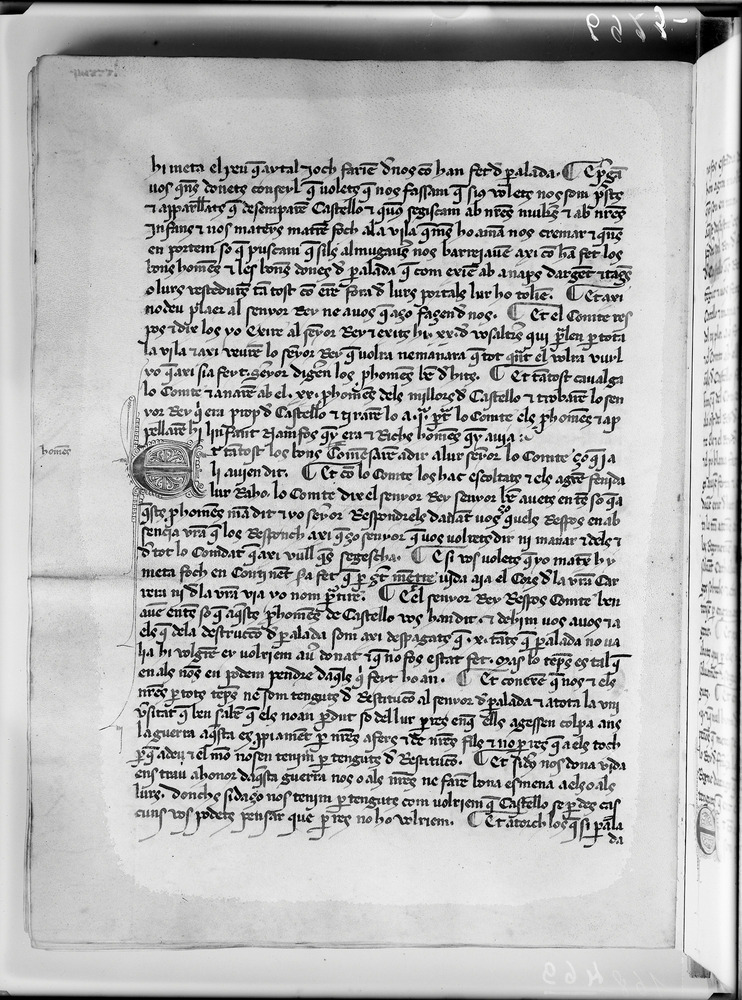 hi meta el peu q̃ aytal Joch fariẽ d'nos cõ han fet d' paladа. ¶ E p̃ gã
uos q̃ns donets conseyl q̃ volets q̃ nos fassam q̃ si uos volets nos som p̃sts
⁊ apparellats q̃ desemparẽ Castello ⁊ quens seguiscam ab nr̃es mulẽs ⁊ ab nr̃es
Infans ⁊ nos mateys matrẽ foch a la vila q̃ mẽs ho amã nos cremar ⁊ q̃ns
en portem so q̃ puscam q̃ sils almugauẽs nos barreiauẽ axi cõ hã fet los
bons homẽs ⁊ les bonẽs dones d' palada q̃ com exiẽ ab anaps dargẽt ⁊ tags
o lurs vestedures tã tost co erẽ fora d' lurs portals lur ho toliẽ. ¶ Et axi
no deu plaer al senyor Rey ne auos q̃ aço façen d' nos. ¶ Et el Comte res
pos ⁊ dix los yo exire al seyor Rey ⁊ exits hi .xx. d' vosaltres qui p̃len p tota
la vila ⁊ axi veure lo seyor Rey q̃ volra ne manara q̃ tot q̃nt el volra vuyl
yo q̃ axi sia feyt. seyor digẽn los phomẽs bẽ d' hits. ¶ Et tãtost caualga
lo Comte ⁊ anarẽ ab el .xx. phomẽs dels millors d' Castello ⁊ trobarẽ lo sen
yor Rey q̃ era prop d' Castello ⁊ tirarẽ lo a .j. p̃t lo Comte els phomẽs ⁊ ap
pellarẽ hi linfant Namfos q̃ y era ⁊ Richs homẽs q̃ y auia
homẽs
Et tãtost los bons Comẽsarẽ adir a lur seyor lo Comte ço q̃ ja
li auien dit. ¶ Et cõ lo Comte los hac escoltats ⁊ els agrẽ fenida
lur Raho. lo Comte dix el senyor Rey senyor bẽ auets entẽs so q̃ a
q̃sts phomẽs mã dit ⁊ yo seyor Respondrels dauãt uos ço quels Respos en ab
sencia vr̃a q̃ los Responch axi q̃ ço senyor q̃ uos volrets dir ni manar ⁊ dels ⁊
d' tot lo Comdat q̃ axi vull q̃s segescha. ¶ E si vos volets q̃ yo mateix hy
meta foch en Continẽt sa fet q̃ p cert mentre vida aja el Cors d' la vr̃a Car
rera ni d' la vr̃a via yo nom p̃tire. ¶ E el senyor Rey Respos Comte ben
auẽ entẽs so q̃ aq̃sts phomẽs de Castello vos han dit. ⁊ dehim uos auos ⁊ a
els q̃ dela destruccio d' palada som axi despagats q̃ .x. tãts q̃ palada no ua
lia hi volgrẽ er volriem auer donat ⁊ q̃ no fos estat fet. Mas lo tẽps es tal q̃
en als nos en podem pendre daq̃ls q̃ feyt ho an. ¶ Et conexẽ q̃ nos ⁊ els
nr̃es p tots tẽps ne som tenguts d' Restitucio al senyor d' palada ⁊ a tota la vni
v'sitat q̃ ben sabẽ q̃ els no an p̃dut so del lur p res enq̃ ells agessen colpa ans
la guerra aq̃sta es ppiamẽt p nr̃es afers ⁊ de nr̃es fills ⁊ no p res q̃ a els toch
p q̃ a deu ⁊ el mõ nosen tenim p tenguts d' Restitucio. ¶ Et si deus nos dona vida
ens trau a honor daq̃sta guerra nos o als nr̃es ne farẽ bona esmena aels o als
lurs. Donchs si daço nos tenim p tenguts com volriem q̃ Castello se pdes cas
cuns vos podets pensar que p res no ho volriem. ¶ Et atorch los q̃ si pala
da